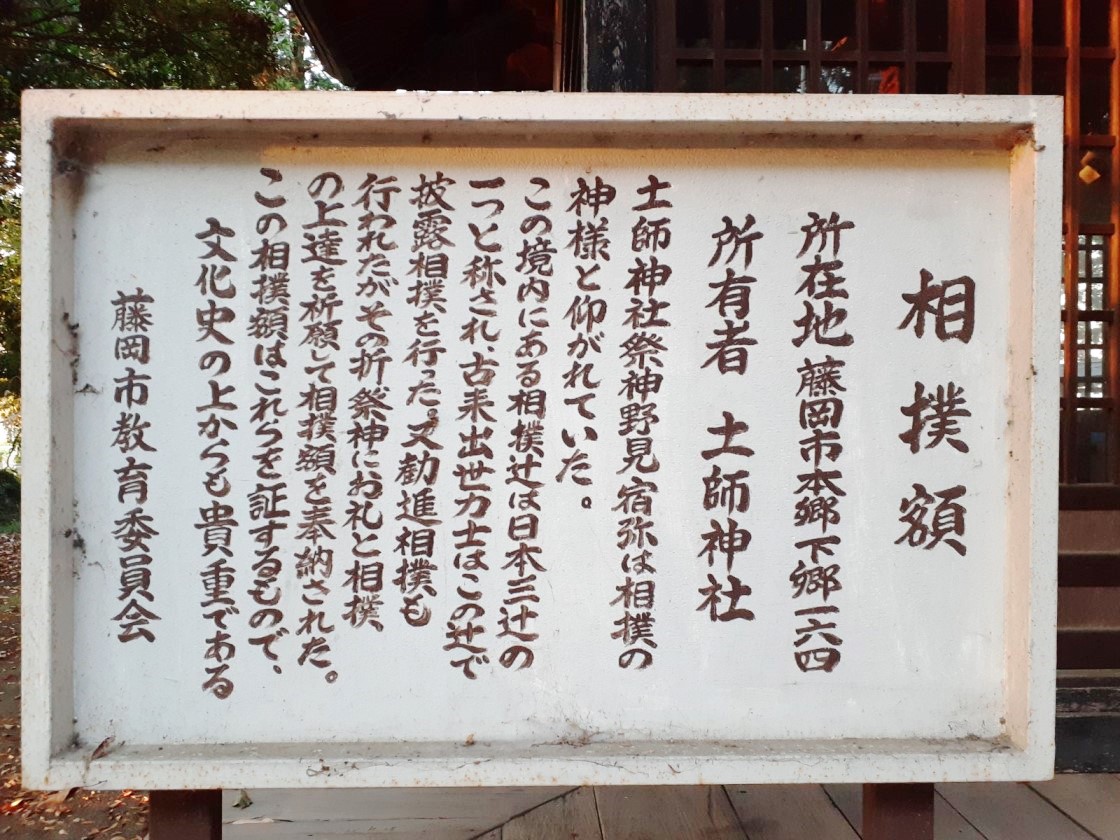 相撲額
所在地 藤岡市本郷下郷一六四
所有者 土師神社
土師神社祭神野見宿弥は相撲の
神様と仰がれていた。
この境内にある相撲辻は日本三辻の
一つと称され、古来出世力士はこの辻で
披露相撲を行った。又勧進相撲も
行われたがその折祭神にお礼と相撲
の上達を祈願して相撲額を奉納された。
この相撲額はこれらを証するもので、
文化史の上からも貴重である
藤岡市教育委員会